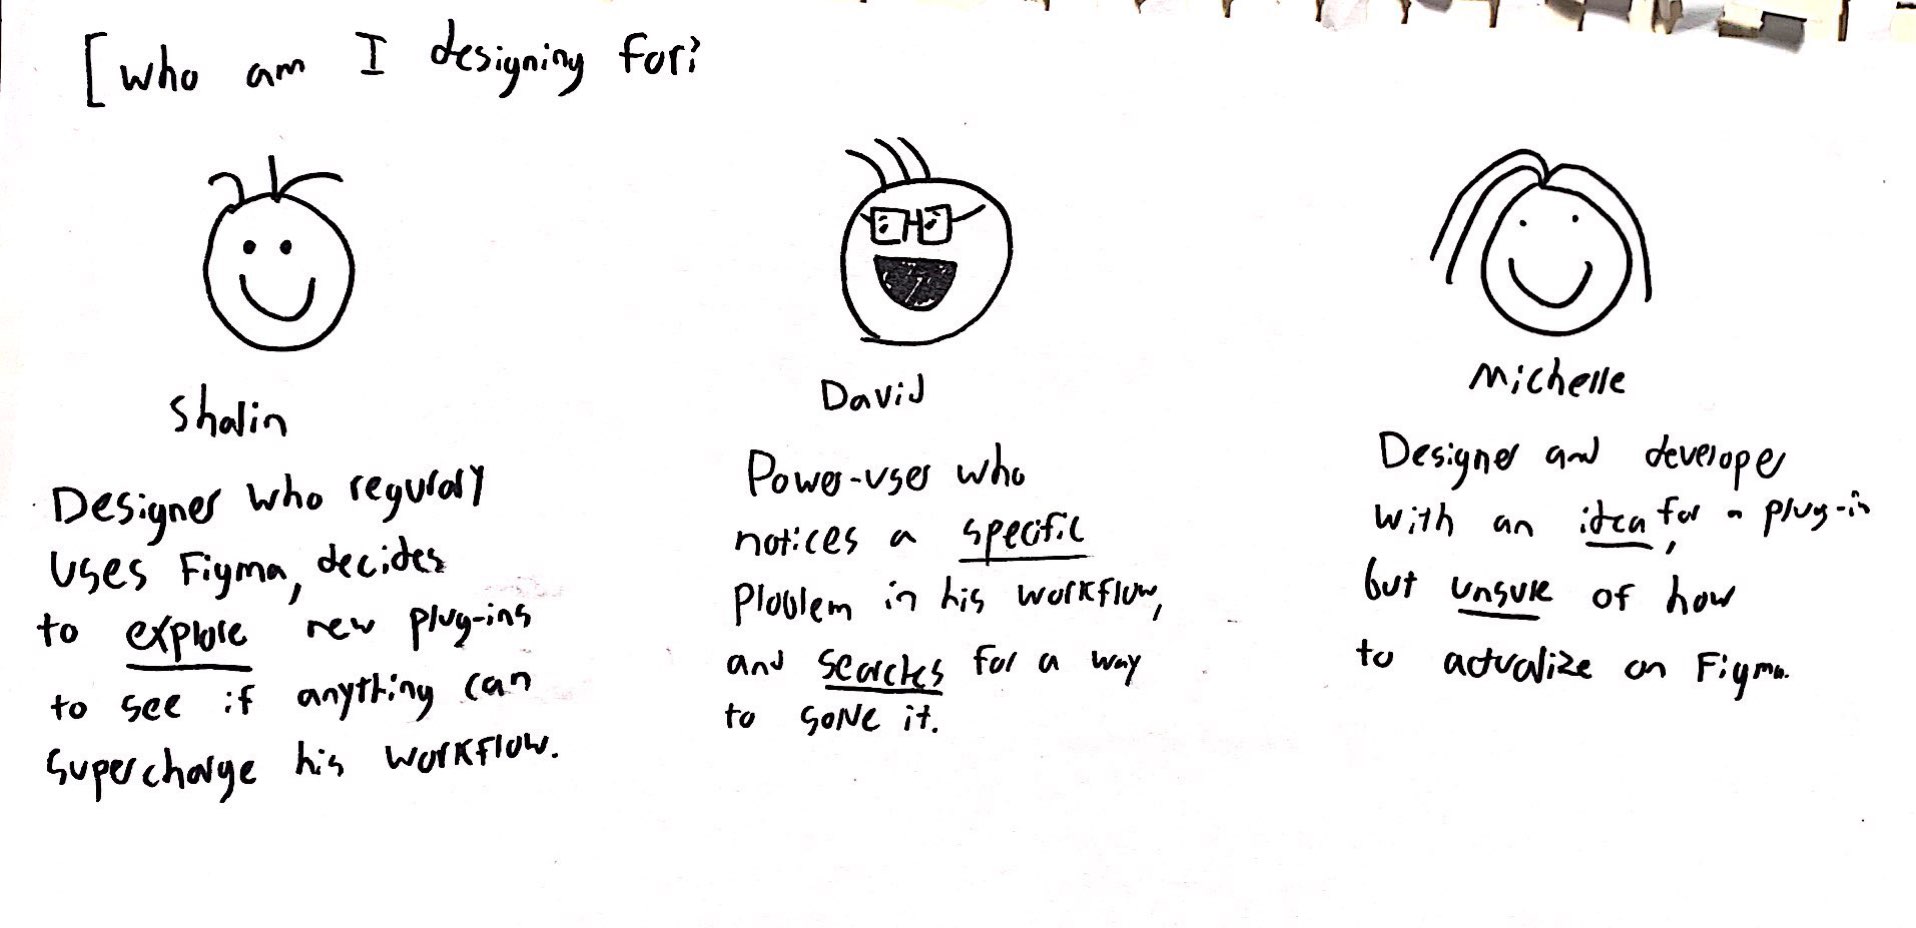 [who am I designing for?
Shalin
Designer who regularly
uses Figma, decides
to explore new plug-ins
to see if anything can
supercharge his workflow.
David
Power-user who
notices a specific
problem in his workflow,
and searches for a way
to solve it.
Michelle
Designer and developer
with an idea for a plug-in,
but unsure of how
to actualize on Figma.